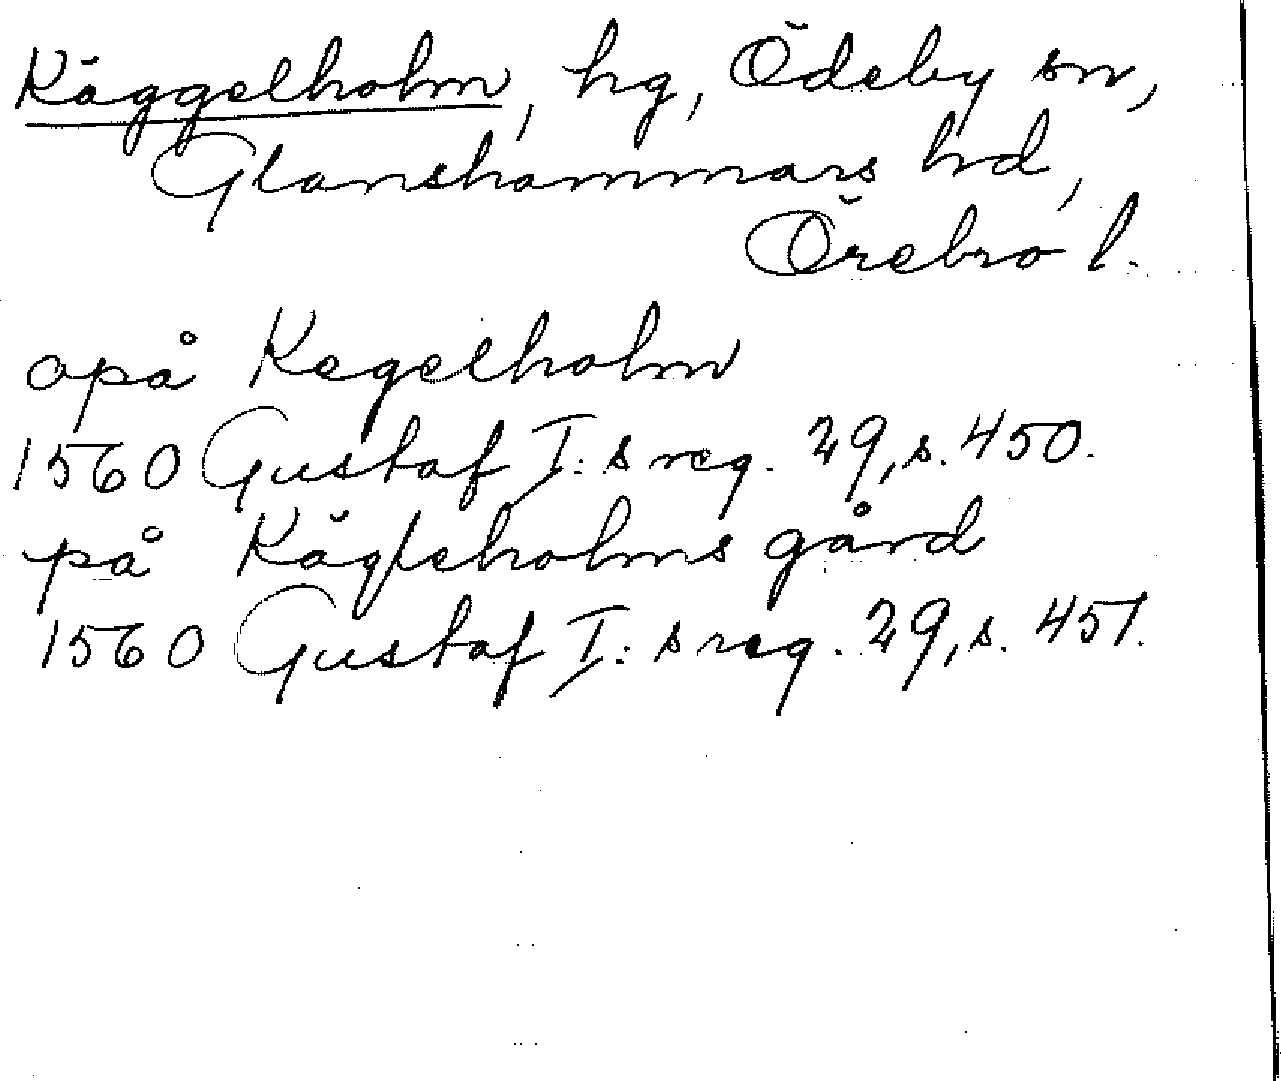 Käggelholm, hg, Ödeby sn,
Glanshammars hd,
Örebro l.
opå Kegelholm
1560 Gustaf I:s reg. 29, s. 450.
på Kägleholms gård
1560 Gustaf I:s reg. 29, s. 451.